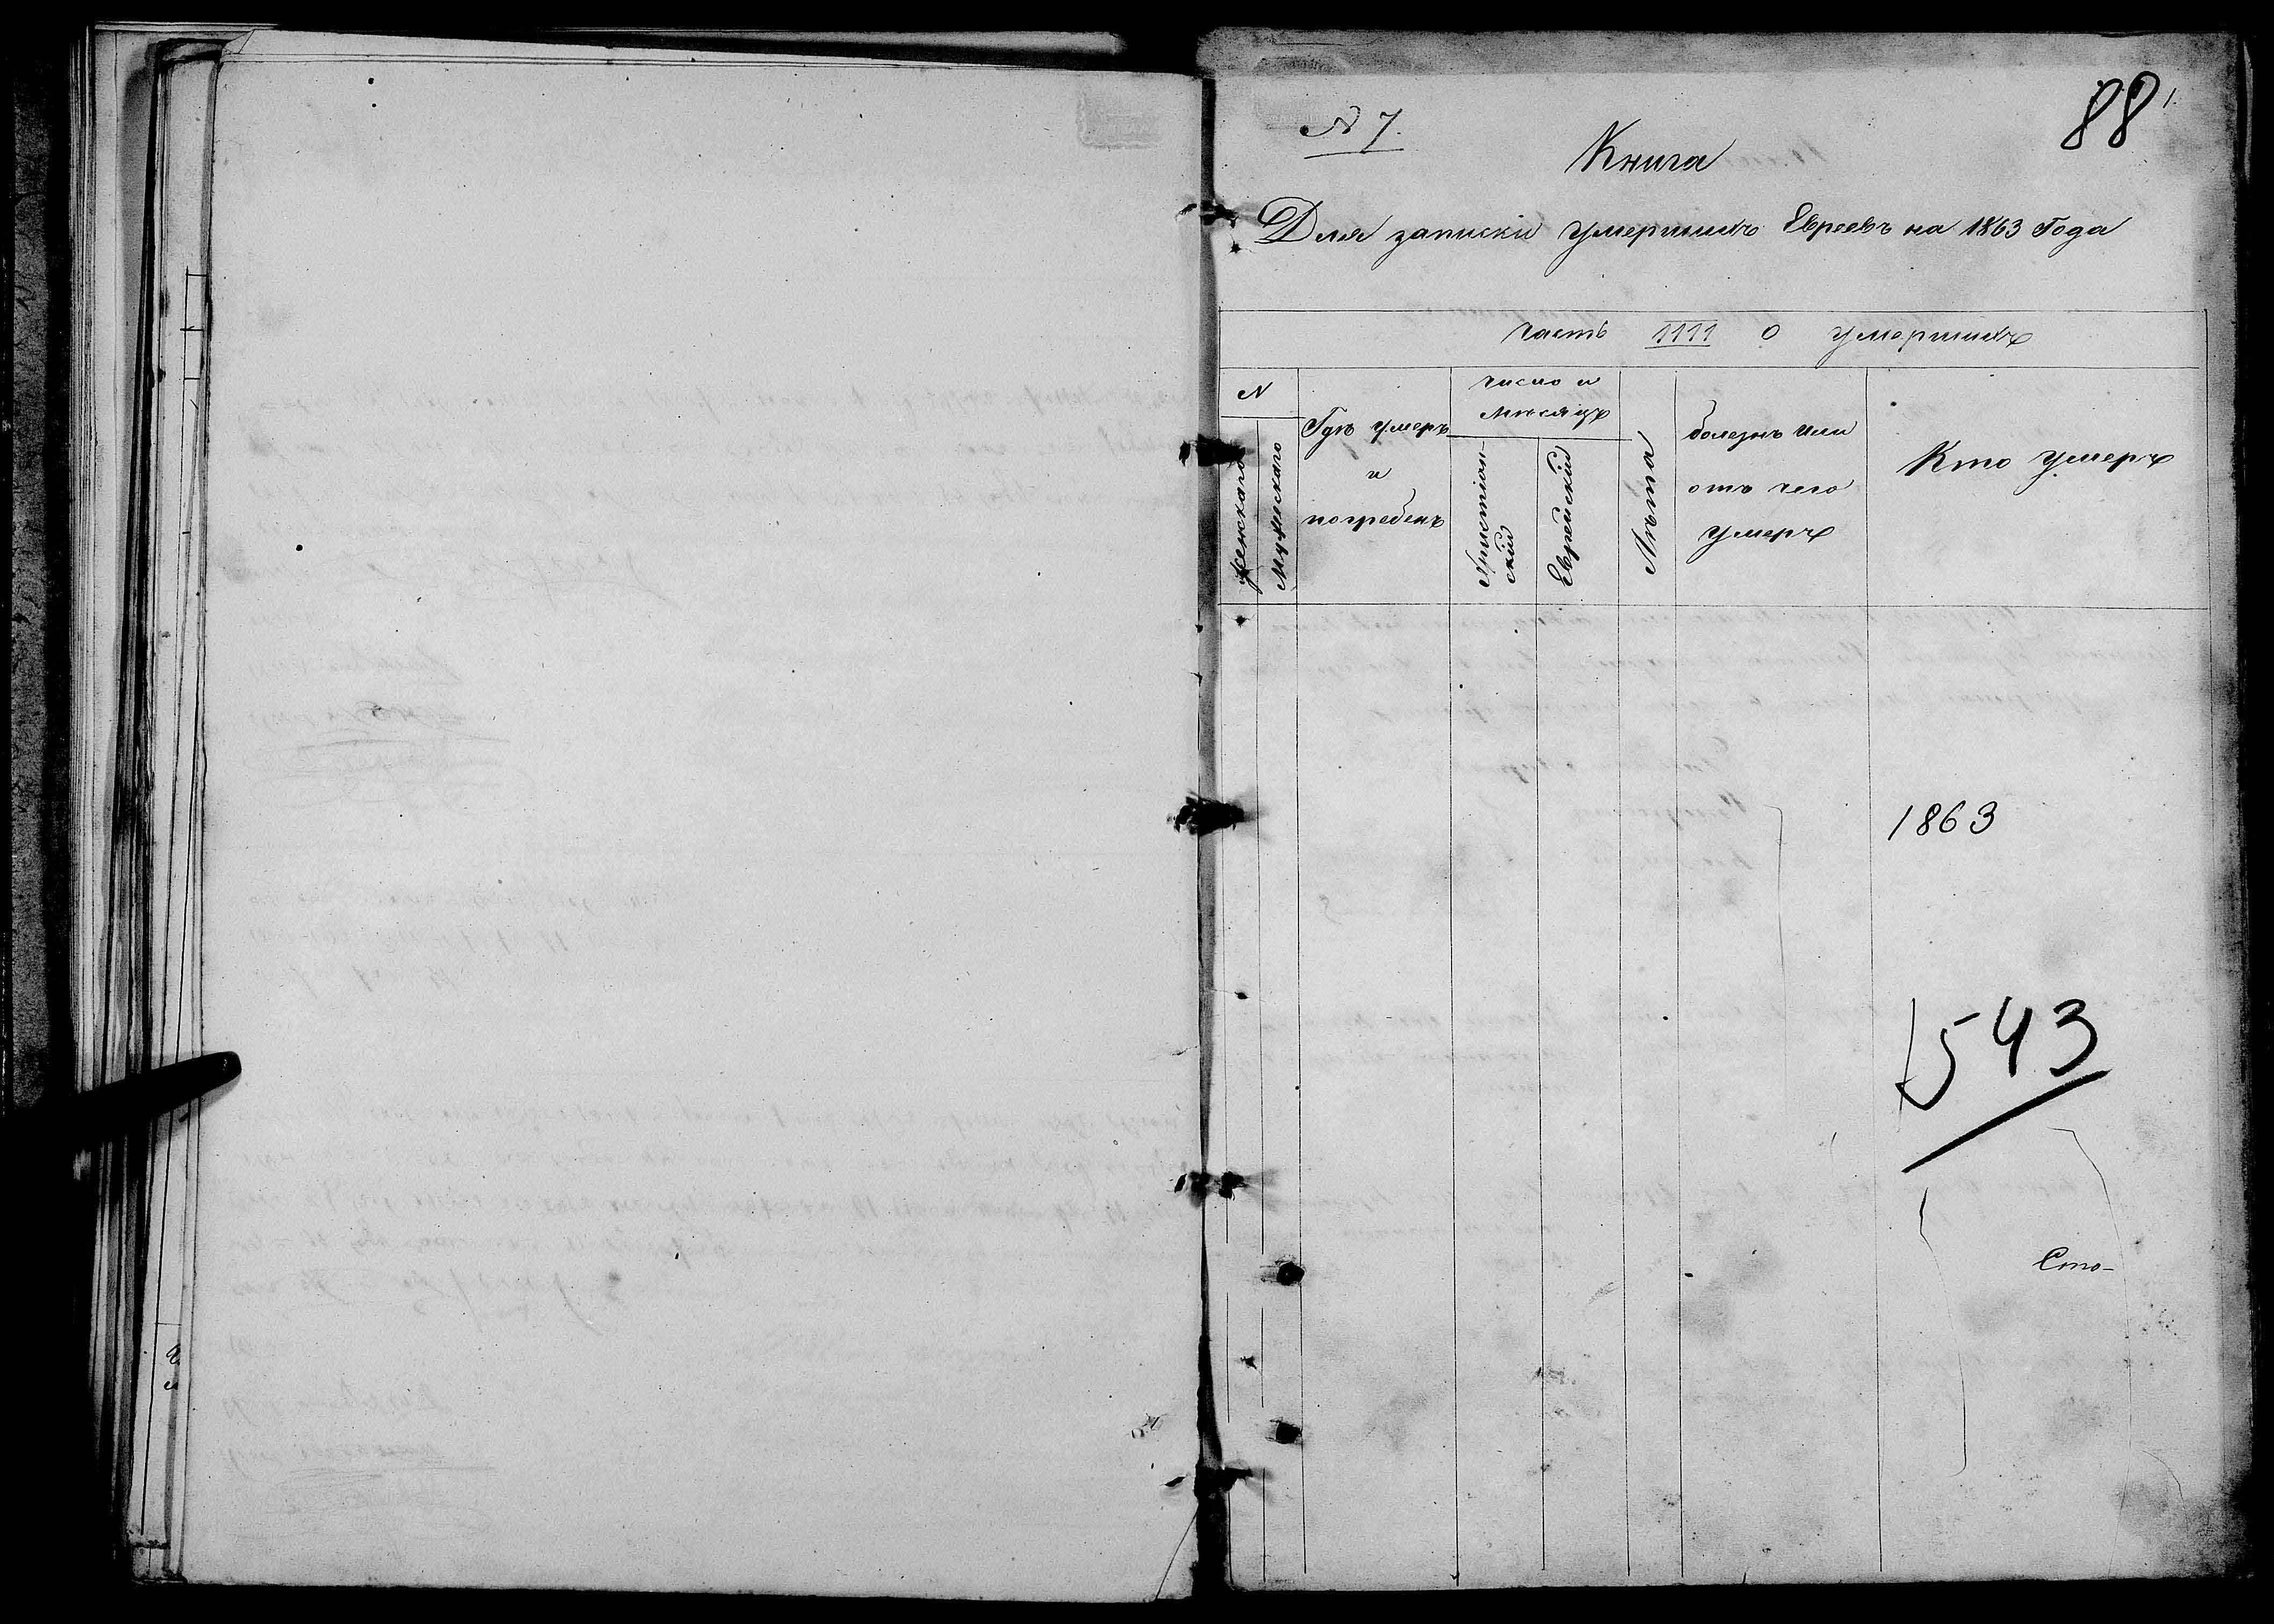 88
N 7.
Книга
Для записки умершихъ Евреевъ на 1863 Года
Часть IIII о умершихъ
N
Женскаго
Мужескаго
Гдѣ умеръ
и
погребенъ
Число и
Мѣсяцъ
Христіан-
скій
Еврейскій
Лѣта
Болезнь или
отъ чего
умеръ
Кто умеръ
1863
543
Сто-